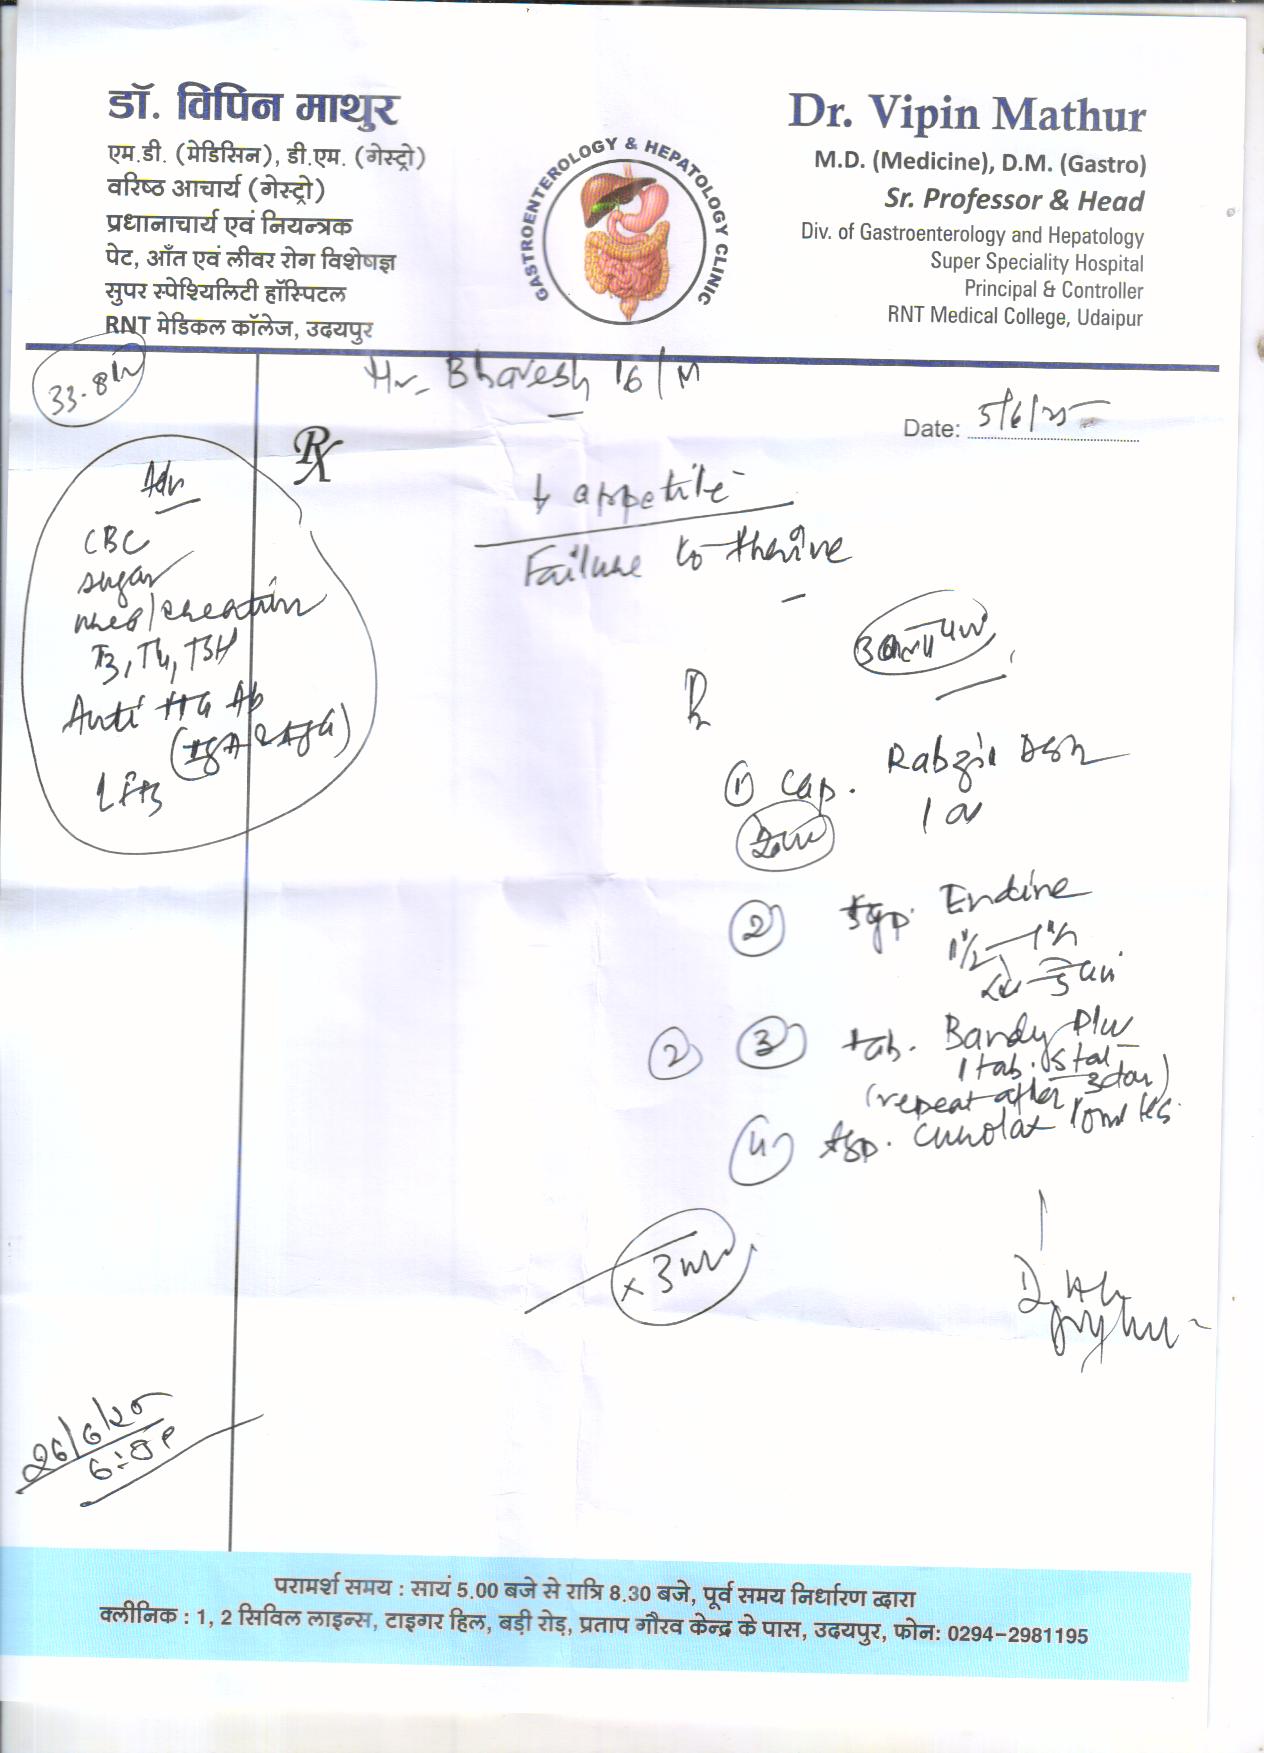 डॉ. विपिन माथुर
एम.डी. (मेडिसिन), डी.एम. (गेस्ट्रो)
वरिष्ठ आचार्य (गेस्ट्रो)
प्रधानाचार्य एवं नियन्त्रक
पेट, आँत एवं लीवर रोग विशेषज्ञ
सुपर स्पेशियलिटी हॉस्पिटल
RNT मेडिकल कॉलेज, उदयपुर
GASTROENTEROLOGY & HEPATOLOGY CLINIC
Dr. Vipin Mathur
M.D. (Medicine), D.M. (Gastro)
Sr. Professor & Head
Div. of Gastroenterology and Hepatology
Super Speciality Hospital
Principal & Controller
RNT Medical College, Udaipur
33.8
Bhavesh 16/M
Date: 5/6/25
Rx
Adv
CBC
sugar
T3, T4, TSH
Anti Ab
(IgA & IgG)
↓ appetite
Failure to thrive
① Cap.
1
② Syp.
2 ③ tab. Bandy Plus
1 tab. stat
(repeat after
④ Syp. 10ml HS
x 3
26/6/25
परामर्श समय : सायं 5.00 बजे से रात्रि 8.30 बजे, पूर्व समय निर्धारण द्वारा
क्लीनिक : 1, 2 सिविल लाइन्स, टाइगर हिल, बड़ी रोड़, प्रताप गौरव केन्द्र के पास, उदयपुर, फोन: 0294-2981195